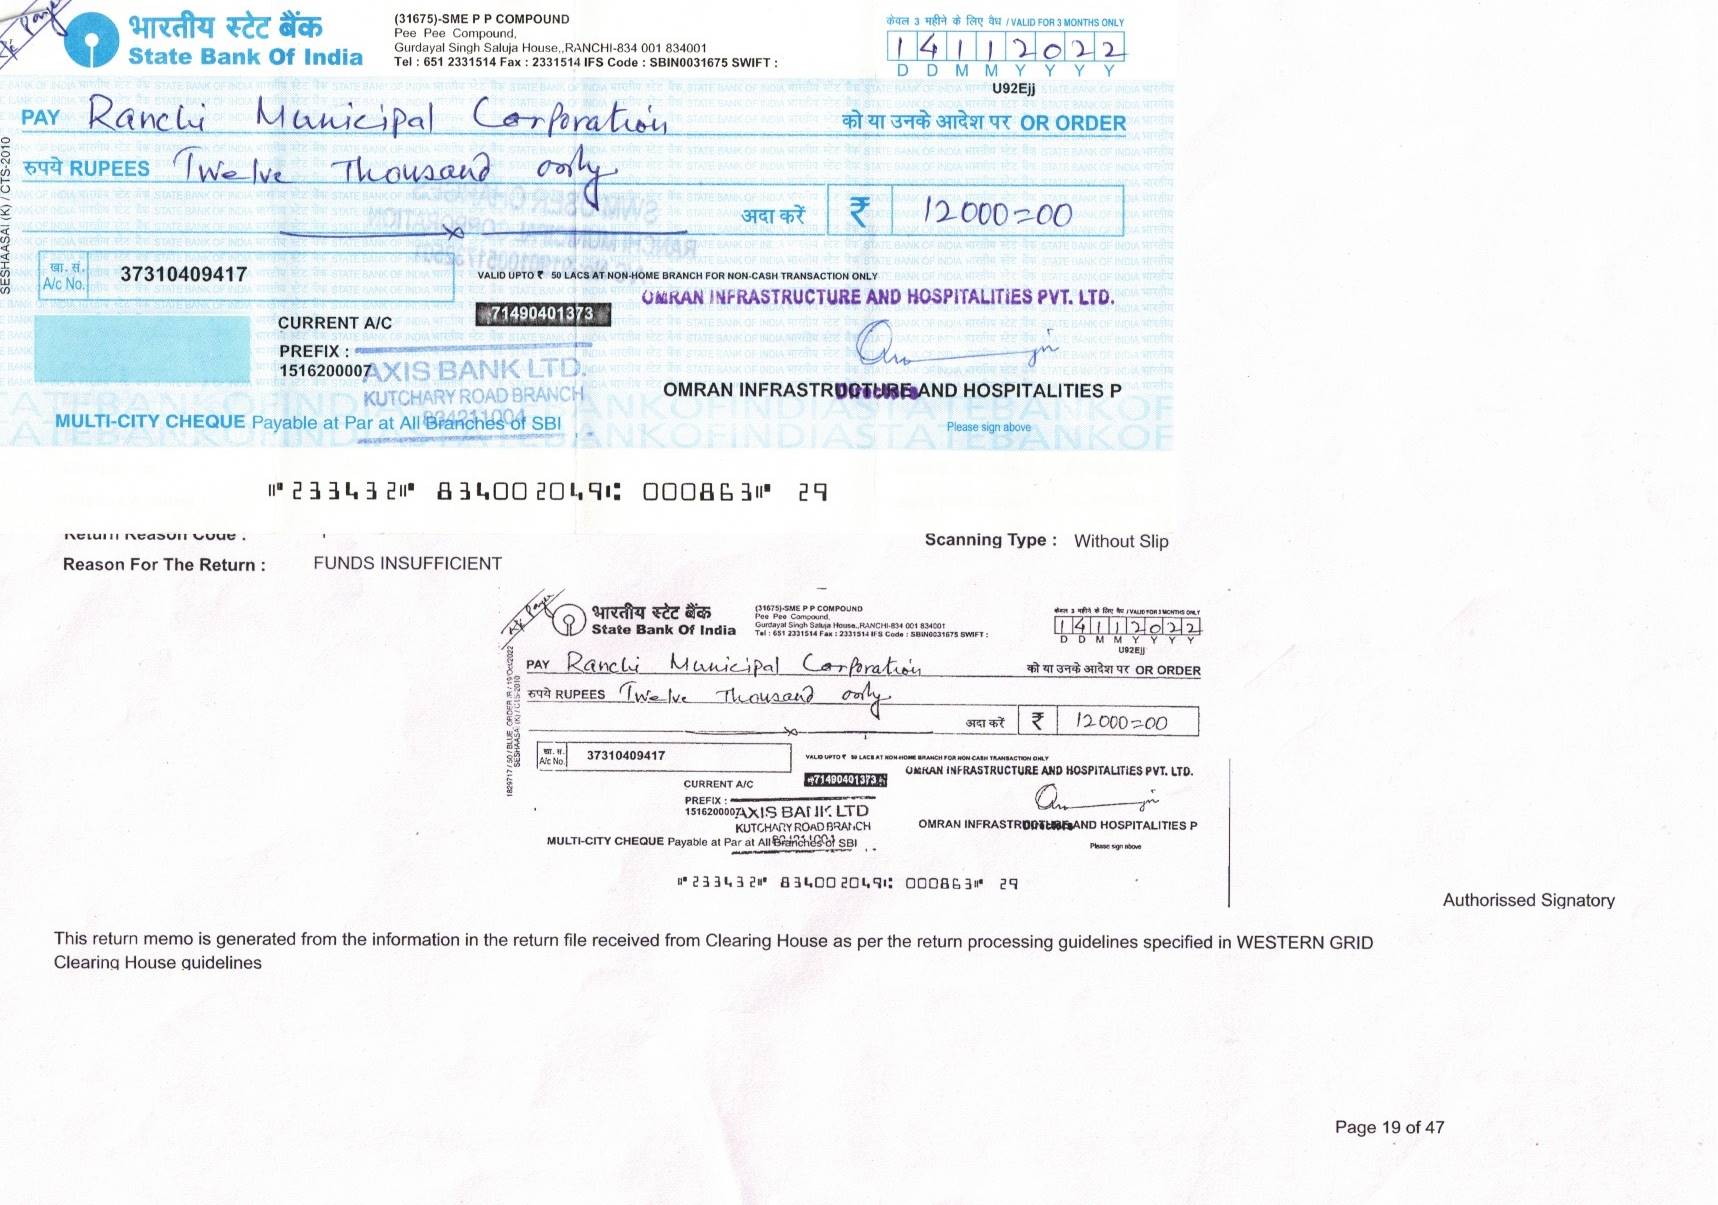 A/c Payee
भारतीय स्टेट बैंक
State Bank Of India
(31675)-SME P P COMPOUND
Pee Pee Compound,
Gurdayal Singh Saluja House,,RANCHI-834 001 834001
Tel : 651 2331514 Fax : 2331514 IFS Code : SBIN0031675 SWIFT :
केवल 3 महीने के लिए वैध / VALID FOR 3 MONTHS ONLY
14112022
D D M M Y Y Y Y
U92Ejj
PAY Ranchi Municipal Corporation को या उनके आदेश पर OR ORDER
रुपये RUPEES Twelve Thousand only
अदा करें ₹ 12000=00
SESHAASAI (K) / CTS-2010
खा. सं. A/c No. 37310409417
VALID UPTO ₹ 50 LACS AT NON-HOME BRANCH FOR NON-CASH TRANSACTION ONLY
OMRAN INFRASTRUCTURE AND HOSPITALITIES PVT. LTD.
71490401373
CURRENT A/C
PREFIX :
1516200007
AXIS BANK LTD.
KUTCHARY ROAD BRANCH
834211004
OMRAN INFRASTRUCTURE AND HOSPITALITIES P
MULTI-CITY CHEQUE Payable at Par at All Branches of SBI
Please sign above
⑈233432⑈ 834002049⑆ 000863⑈ 29
Return Reason Code :
Scanning Type : Without Slip
Reason For The Return : FUNDS INSUFFICIENT
A/c Payee
भारतीय स्टेट बैंक
State Bank Of India
(31675)-SME P P COMPOUND
Pee Pee Compound,
Gurdayal Singh Saluja House,,RANCHI-834 001 834001
Tel : 651 2331514 Fax : 2331514 IFS Code : SBIN0031675 SWIFT :
केवल 3 महीने के लिए वैध / VALID FOR 3 MONTHS ONLY
14112022
D D M M Y Y Y Y
U92Ejj
PAY Ranchi Municipal Corporation को या उनके आदेश पर OR ORDER
रुपये RUPEES Twelve Thousand only
अदा करें ₹ 12000=00
SESHAASAI (K) / CTS-2010
खा. सं. A/c No. 37310409417
VALID UPTO ₹ 50 LACS AT NON-HOME BRANCH FOR NON-CASH TRANSACTION ONLY
OMRAN INFRASTRUCTURE AND HOSPITALITIES PVT. LTD.
71490401373
CURRENT A/C
PREFIX :
1516200007
AXIS BANK LTD
KUTCHARY ROAD BRANCH
OMRAN INFRASTRUCTURE AND HOSPITALITIES P
MULTI-CITY CHEQUE Payable at Par at All Branches of SBI
Please sign above
⑈233432⑈ 834002049⑆ 000863⑈ 29
Authorissed Signatory
This return memo is generated from the information in the return file received from Clearing House as per the return processing guidelines specified in WESTERN GRID
Clearing House guidelines
Page 19 of 47